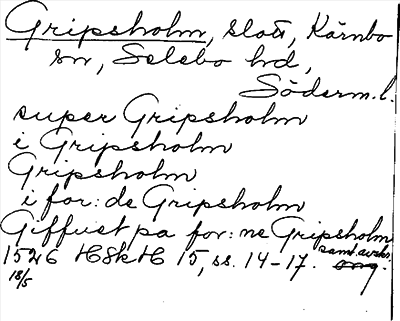 Gripsholm, slott, Kärnbo
sn, Selebo hd,
Söderm.l.
super Gripsholm
i Gripsholm
Gripsholm
i for: de Gripsholm
Giffuet pa for: ne Gripsholm
1526 HSkH 15, ss. 14-17. samt. avskr.
18/5